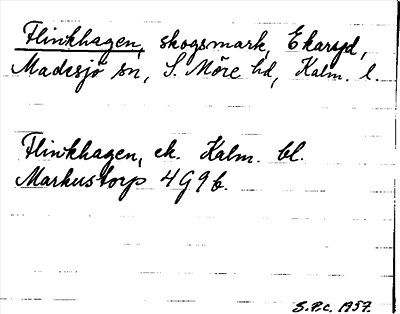 Flinkhagen, skogsmark, Ekaryd,
Madesjö sn, S. Möre hd, Kalm. l.
Flinkhagen, ek. Kalm. bl.
Markustorp 4G9b.
S.P.c. 1957.